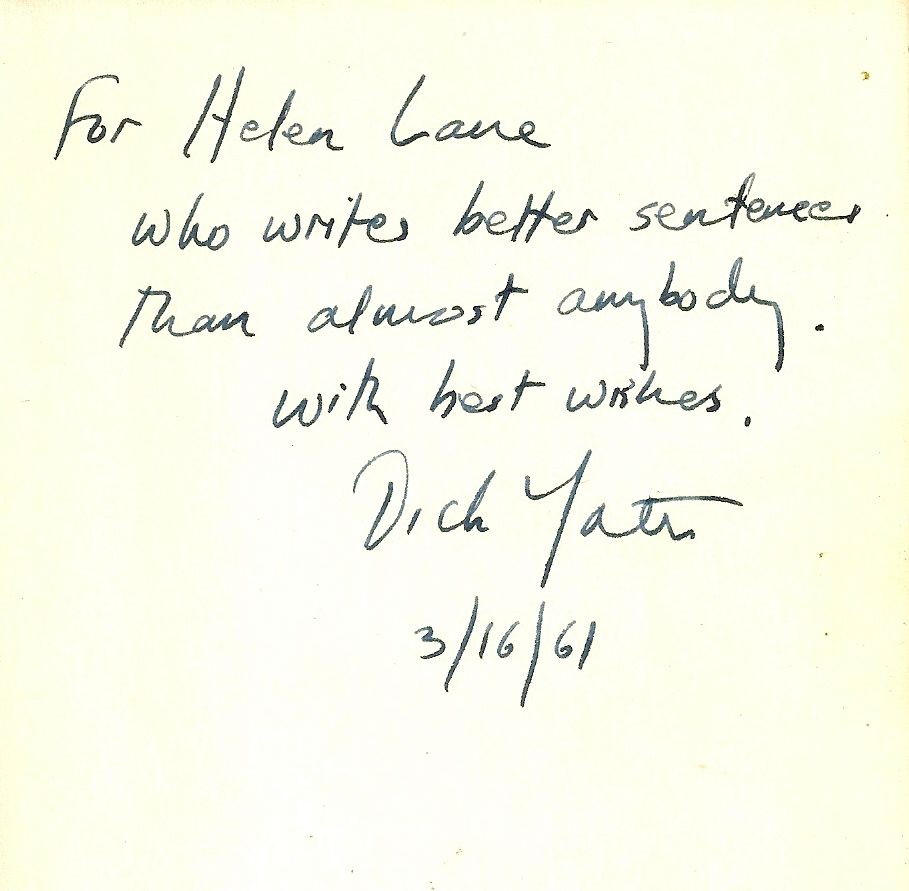 For Helen Lane
who writes better sentences
than almost anybody.
with best wishes.
Dick Yates
3/16/61